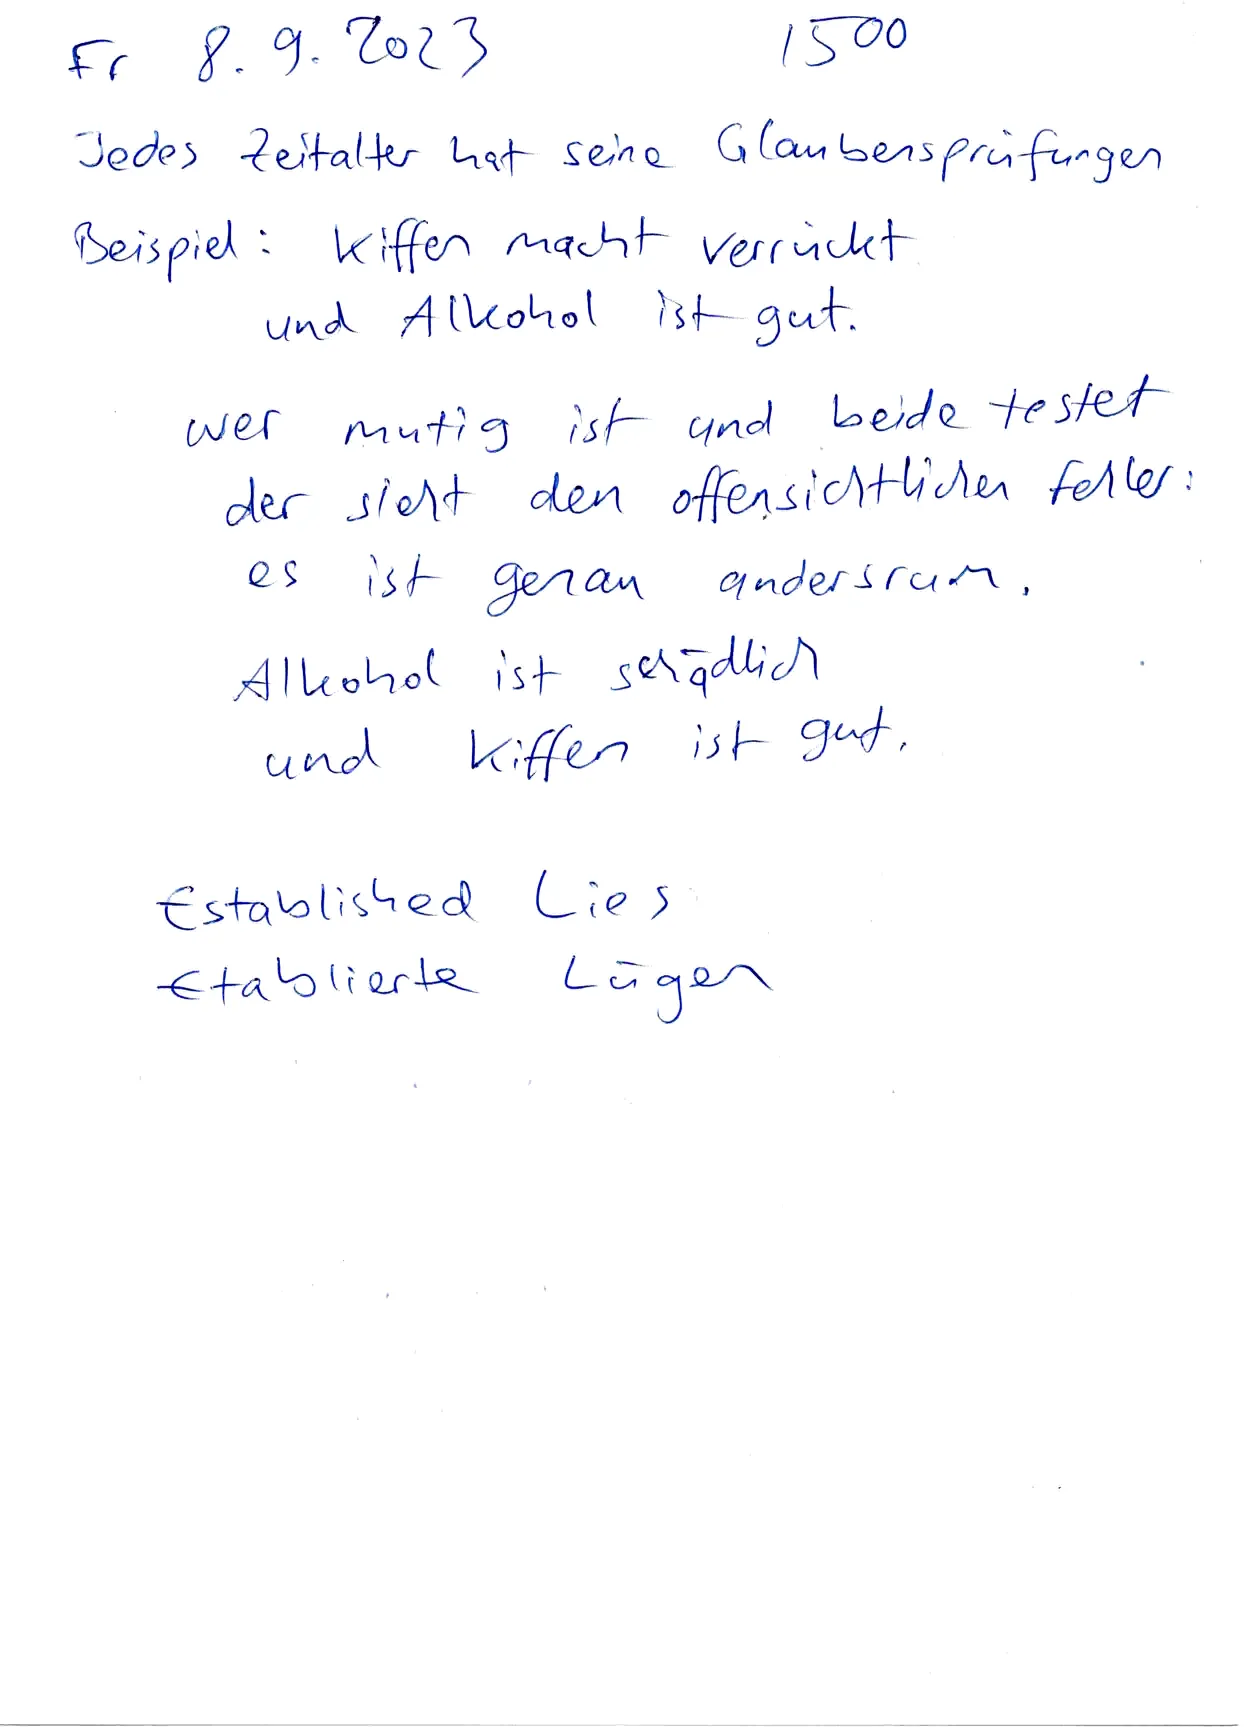 Fr 8.9.2023 1500
Jedes Zeitalter hat seine Glaubensprüfungen
Beispiel: Kiffen macht verrückt
und Alkohol ist gut.
wer mutig ist und beide testet
der sieht den offensichtlichen Fehler:
es ist genau andersrum.
Alkohol ist schädlich
und Kiffen ist gut.
Established Lies
Etablierte Lügen